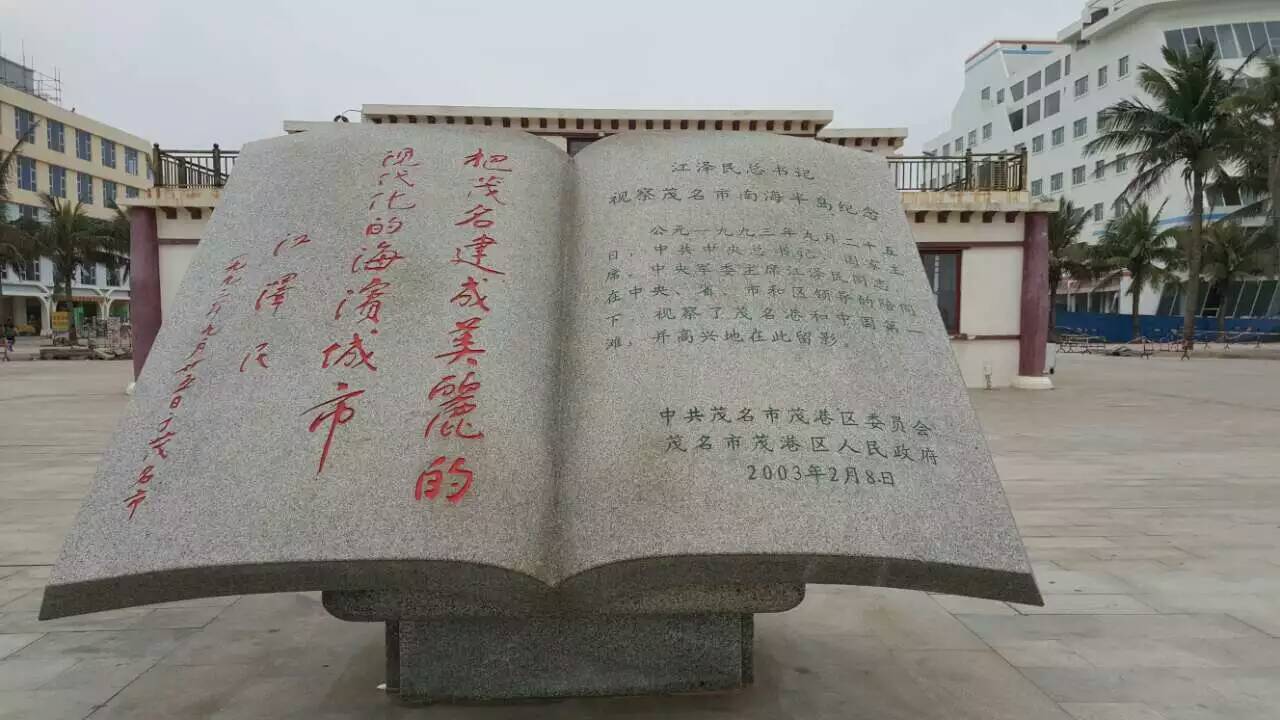 把茂名建成美麗的
现代化的海濱城市
江澤民
一九九三年九月廿五日于茂名市
江泽民总书记
视察茂名市南海半岛纪念
公元一九九三年九月二十五
日，中共中央总书记、国家主
席、中央军委主席江泽民同志，
在中央、省、市和区领导的陪同
下，视察了茂名港和中国第一
滩，并高兴地在此留影。
中共茂名市茂港区委员会
茂名市茂港区人民政府
2003年2月8日